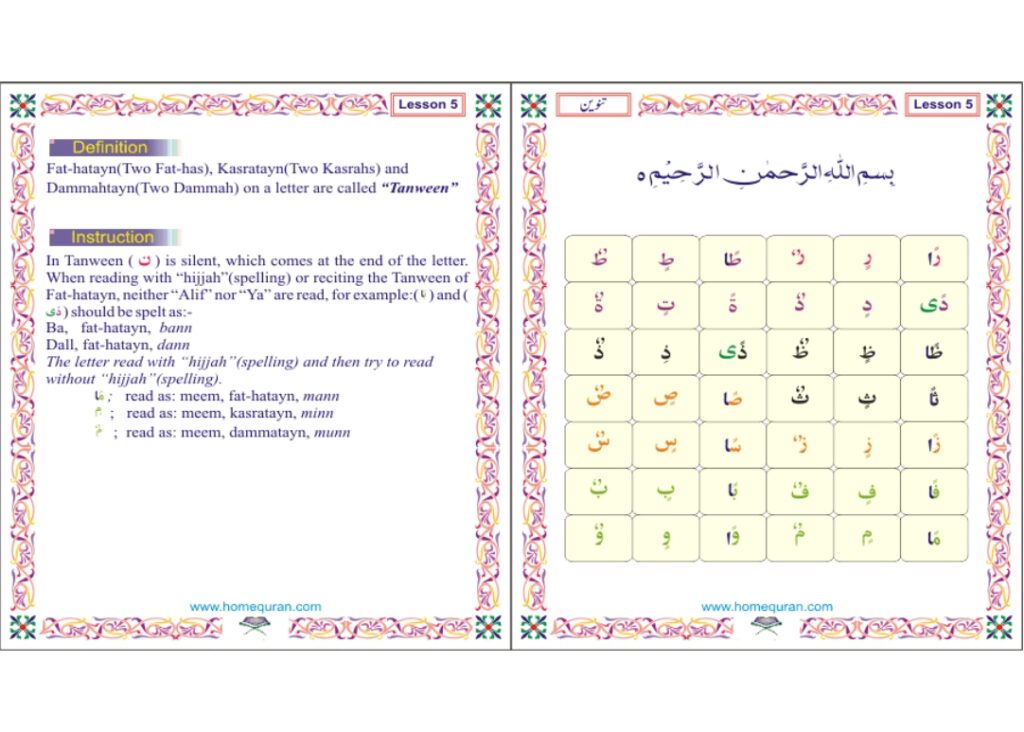 Lesson 5
Definition
Fat-hatayn(Two Fat-has), Kasratayn(Two Kasrahs) and
Dammahtayn(Two Dammah) on a letter are called “Tanween”
Instruction
In Tanween ( ن ) is silent, which comes at the end of the letter.
When reading with “hijjah”(spelling) or reciting the Tanween of
Fat-hatayn, neither “Alif” nor “Ya” are read, for example:( بًا ) and (
دًى ) should be spelt as:-
Ba, fat-hatayn, bann
Dall, fat-hatayn, dann
The letter read with “hijjah”(spelling) and then try to read
without “hijjah”(spelling).
مًا ; read as: meem, fat-hatayn, mann
مٍ ; read as: meem, kasratayn, minn
مٌ ; read as: meem, dammatayn, munn
www.homequran.com
تنوين Lesson 5
بِسمِ اللهِ الرَّحمٰنِ الرَّحِيْمِ ه
رًا رٍ رٌ طًا طٍ طٌ
دًى دٍ دٌ ةً تٍ ةٌ
ظًا ظٍ ظٌ ذًى ذٍ ذٌ
ثًا ثٍ ثٌ صًا صٍ صٌ
زًا زٍ زٌ سًا سٍ سٌ
فًا فٍ فٌ بًا بٍ بٌ
مًا مٍ مٌ وًا وٍ وٌ
www.homequran.com